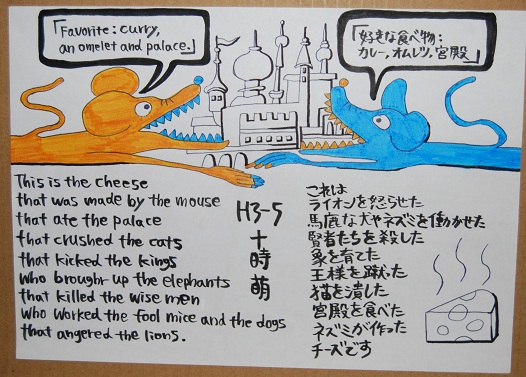 「Favorite: curry,
an omelet and palace.」
「好きな食べ物:
カレー,オムレツ,宮殿」
This is the cheese
that was made by the mouse
that ate the palace
that crushed the cats
that kicked the kings
who brought up the elephants
that killed the wise men
who worked the fool mice and the dogs
that angered the lions.
H3-5
十
時
萌
これは
ライオンを怒らせた
馬鹿な犬やネズミを働かせた
賢者たちを殺した
象を育てた
王様を蹴った
猫を潰した
宮殿を食べた
ネズミが作った
チーズです